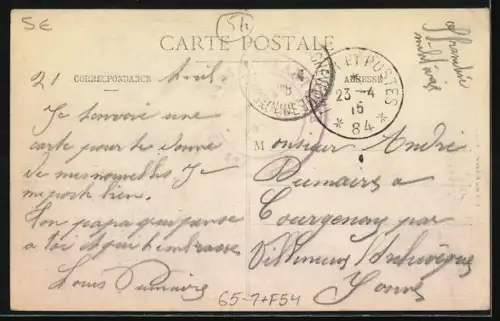 5E
54
CARTE POSTALE
Franchise
militaire
CORRESPONDANCE
ADRESSE
21 Avril
ET POSTES
23-4
15
* 84 *
Je t'envoie une
carte pour te donne
de mes nouvelles Je
me porte bien.
Ton papa qui pense
a toi et qui t'embrasse
Louis Dumaire
M onsieur André
Dumaire a
Courgenay par
Villeneuve l'Archevêque
Yonne
65-7+F54